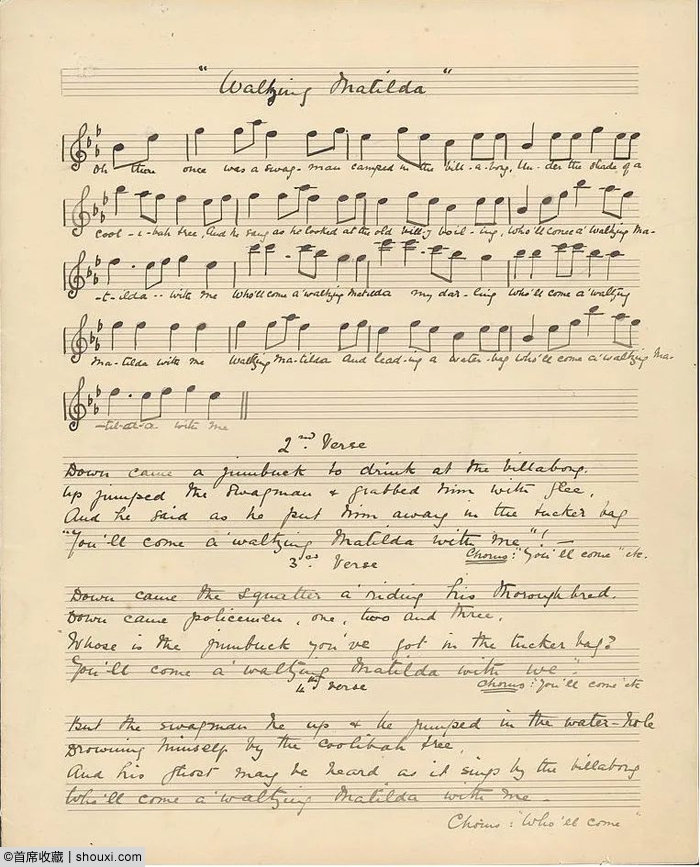 "Waltzing Matilda"
Oh there once was a swag-man camped in the bill-a-bong, Un-der the shade of a
cool-i-bah tree, And he sang as he looked at the old bill-y boil-ing, Who'll come a' waltzing Ma-
-t-ilda -- with me Who'll come a' waltzing Matilda my dar-ling Who'll come a' waltzing
Ma-tilda with me Waltzing Ma-tilda and lead-ing a water-bag who'll come a' waltzing Ma-
-tild-a with me
2nd. Verse
Down came a jumbuck to drink at the billabong.
Up jumped the swagman & grabbed him with glee,
And he said as he put him away in the tucker bag
"You'll come a' waltzing Matilda with me"! —
Chorus: "You'll come" etc.
3rd. Verse
Down came the squatter a' riding his thoroughbred.
Down came policemen, one, two and three,
Whose is the jumbuck you've got in the tucker bag?
You'll come a' waltzing Matilda with we".
Chorus: "You'll come" etc
4th verse
But the swagman he up & he jumped in the water-hole
Drowning himself by the coolibah tree,
And his ghost may be heard as it sings by the billabong
Who'll come a' waltzing Matilda with me.
Chorus: "Who'll come"
©首席收藏 | shouxi.com